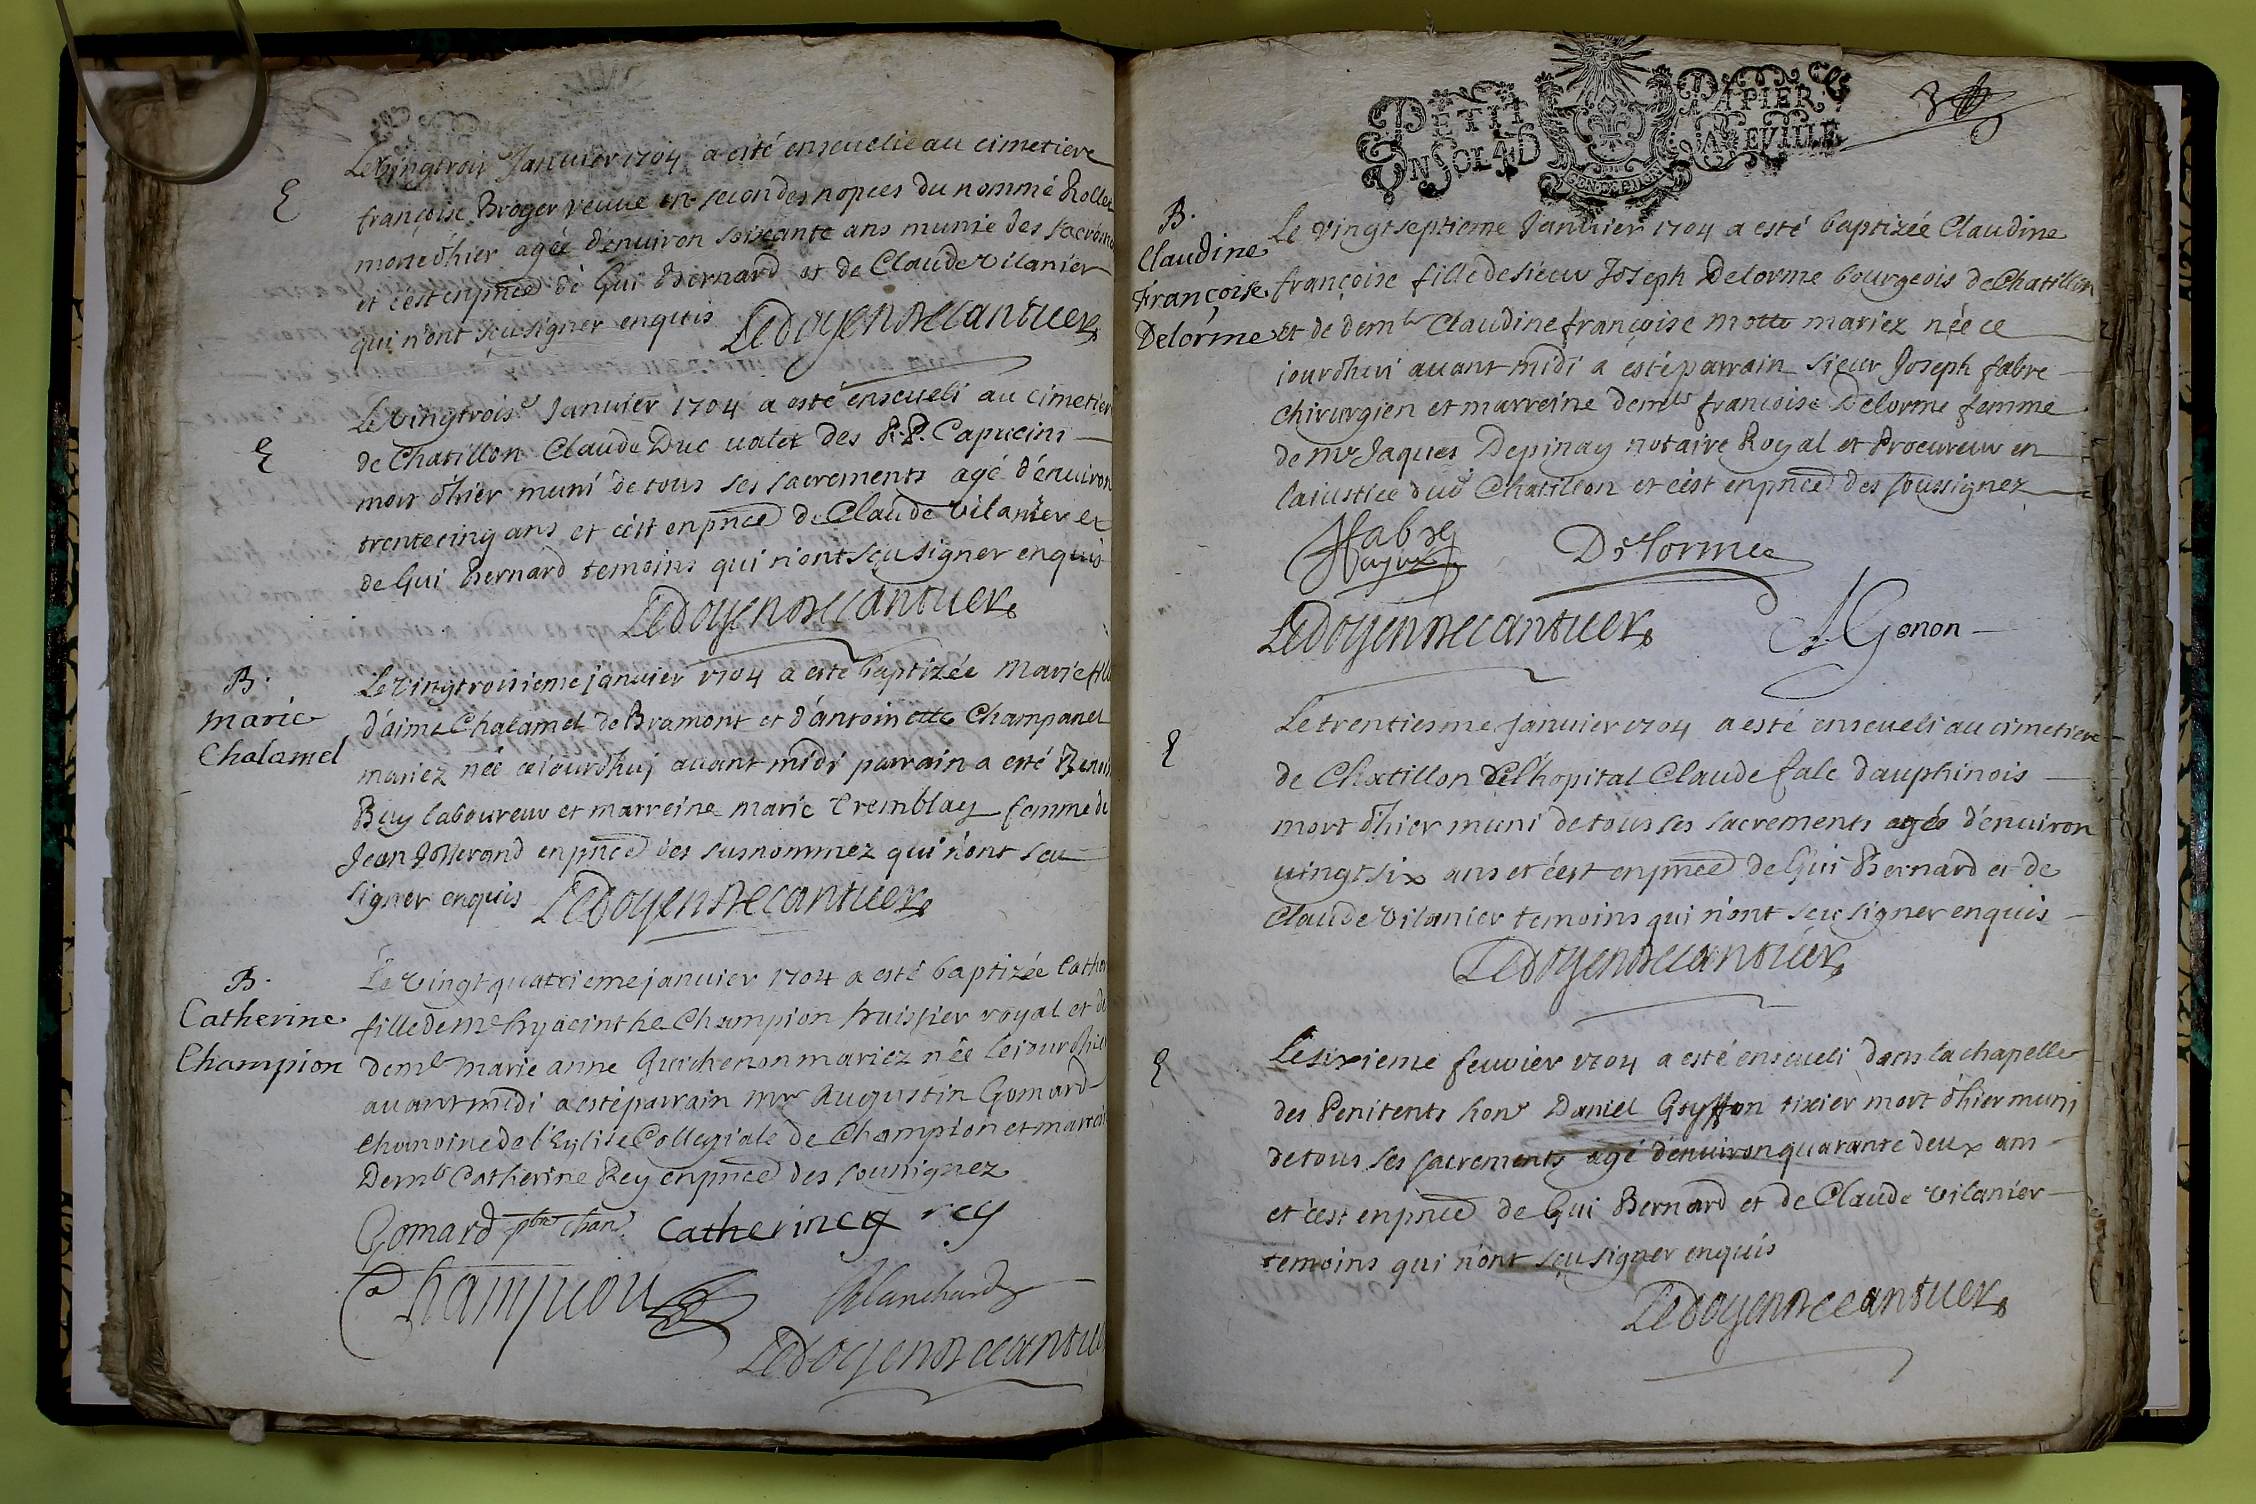 E
Le vingtrois.e Janvier 1704 a esté ensevelie au cimetiere
françoise Broger veuve en secondes nopces du nommé Rollet
morte d'hier agée d'environ soixante ans munie des sacrem
et c'est en pñce de Gui Bernard et de Claude Vilanier
qui n'ont sçu signer enquis Ledoyen de cantuer
E
Le vingtrois.e Janvier 1704 a esté enseveli au cimetier
de Chatillon Claude Duc valet des R.P. Capucins
mort d'hier muni de tous ses sacrements agé d'environ
trente cinq ans et c'est en pñce de Claude Vilanier et
de Gui Bernard temoins qui n'ont sçu signer enquis
Ledoyen de cantuer
B.
marie
Chalamel
Le vingtroisieme janvier 1704 a esté baptizée Marie fill
d'aimé Chalamel de Bramont et d'antoinette Champanel
mariez née ce iourd'huj avant midi parrain a esté Benoit
Buy laboureur et marreine marie Tremblay femme de
Jean Jollerand en pñce des susnommez qui n'ont sçu
signer enquis Ledoyen de cantuer
B.
Catherine
Champion
Le vingt quatrieme janvier 1704 a esté baptizée Cathe
fille de me hyacinthe Champion huissier royal et de
deml.e marie anne Guichenon mariez née le iour d'hier
avant midi a esté parrain mr Augustin Gomard
chanoine de l'Eglise Collegiale de Champion et marrei
Dem.le Catherine Rey en pñce des soussignez
Gomard pbre chan. catherine rey
Champion Blanchard
Ledoyen de cantue
PETIT PAPIER
UN SOL 4 D LA FEVILLE
B.
Claudine
Françoise
Delorme
Le vingt septieme Janvier 1704 a esté baptizée Claudine
françoise fille de sieur Joseph Delorme bourgeois de Chatillon
et de dem.le Claudine françoise Motte mariez née ce
iourd'hui avant midi a esté parrain sieur Joseph fabre
chirurgien et marreine dem.le françoise Delorme femme
de mre Jaques Depinay notaire Royal et Procureur en
la iustice dud Chatillon et c'est en pñce des soussignez
Fabre Delorme
Ledoyen de cantuer Genon
E
Le trentiesme Janvier 1704 a esté enseveli au cimetiere
de Chatillon de l'hopital Claude fale dauphinois
mort d'hier muni de tous ses sacrements agée d'environ
vingt six ans et c'est en pñce de Gui Bernard et de
Claude Vilanier temoins qui n'ont sçu signer enquis
Ledoyen de cantuer
E
Le sixieme fevvier 1704 a esté enseveli dans la chapelle
des Penitents hon.e Daniel Gryffon tixier mort d'hier muni
de tous ses sacrements agé d'environ quarante deux ans
et c'est en pñce de Gui Bernard et de Claude Vilanier
temoins qui n'ont sçu signer enquis
Ledoyen de cantuer